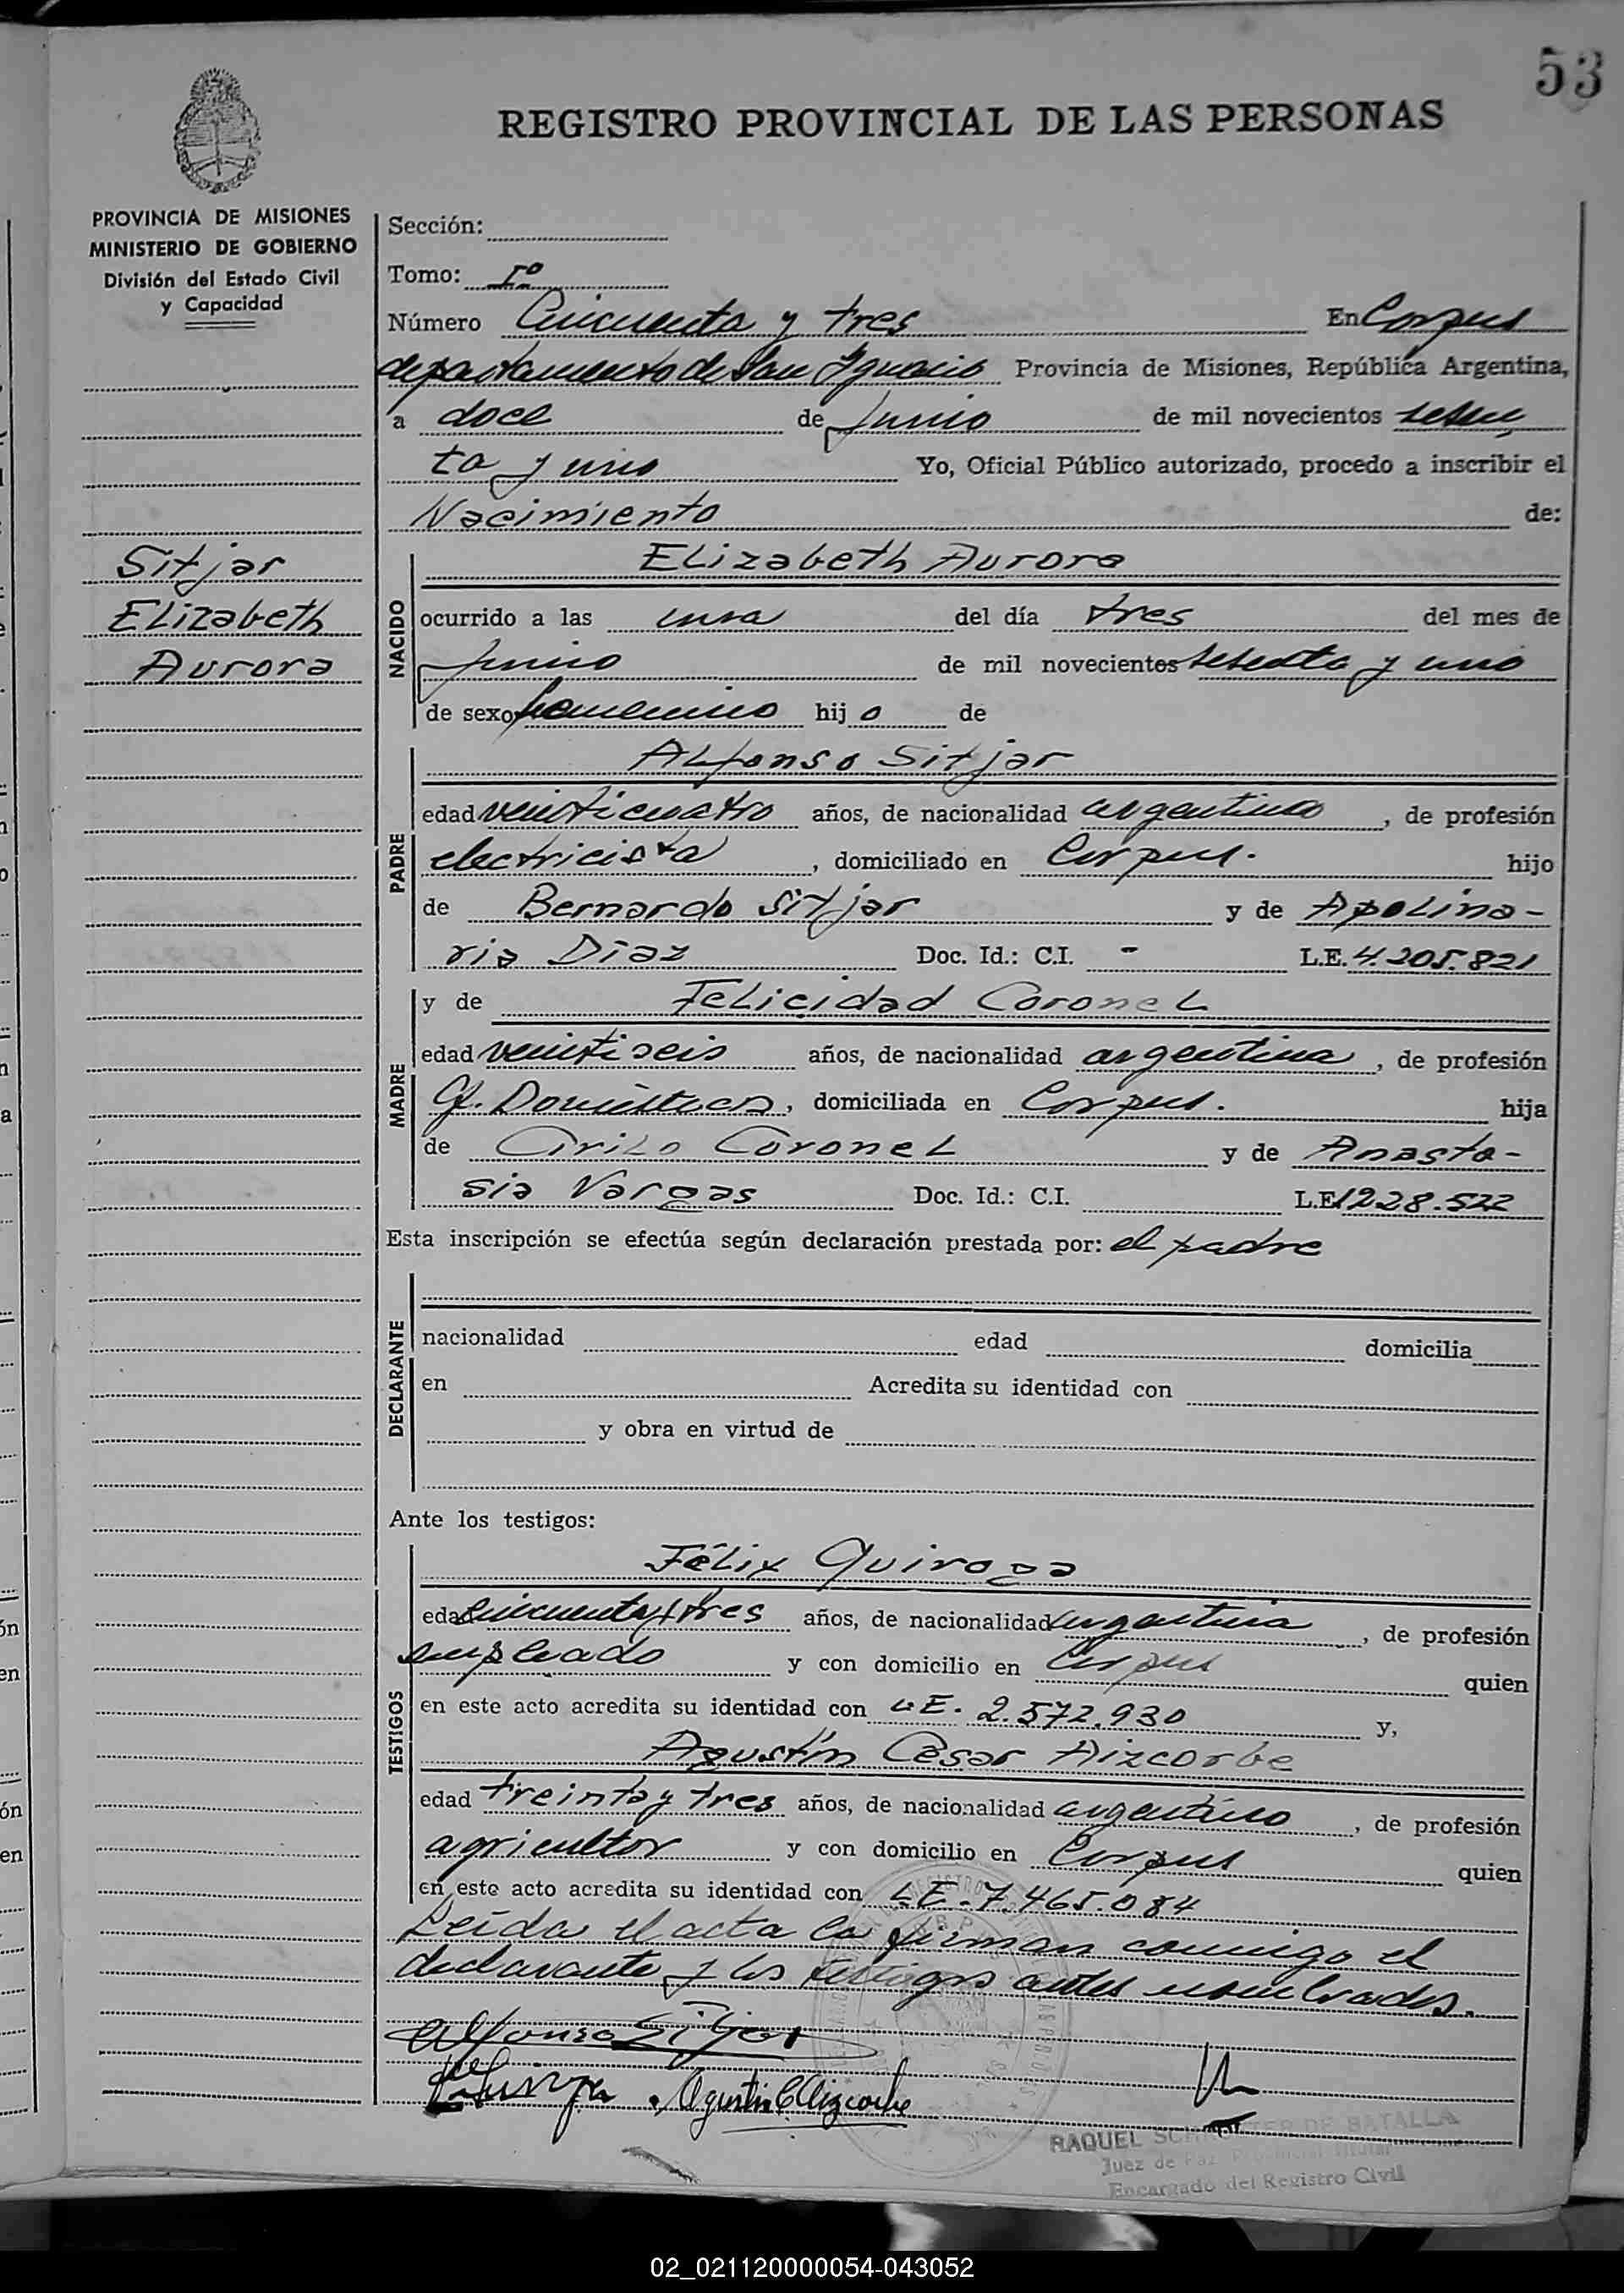 53
REGISTRO PROVINCIAL DE LAS PERSONAS
PROVINCIA DE MISIONES
MINISTERIO DE GOBIERNO
División del Estado Civil
y Capacidad
Sitjar
Elizabeth
Aurora
Sección:
Tomo: Iº
Número Cincuenta y tres En Corpus
departamento de San Ignacio Provincia de Misiones, República Argentina,
a doce de Junio de mil novecientos seten
ta y uno Yo, Oficial Público autorizado, procedo a inscribir el
Nacimiento de:
NACIDO
Elizabeth Aurora
ocurrido a las una del día tres del mes de
Junio de mil novecientos setenta y uno
de sexo femenino hij o de
PADRE
Alfonso Sitjar
edad veinticuatro años, de nacionalidad argentino, de profesión
electricista, domiciliado en Corpus. hijo
de Bernardo Sitjar y de Apolina-
ria Diaz Doc. Id.: C.I. - L.E. 4.205.821
MADRE
y de Felicidad Coronel
edad veintiseis años, de nacionalidad argentina, de profesión
Q. Domésticos, domiciliada en Corpus. hija
de Cirilo Coronel y de Anasta-
sia Vargas Doc. Id.: C.I. L.E. 1228.522
Esta inscripción se efectúa según declaración prestada por: el padre
DECLARANTE
nacionalidad edad domicilia
en Acredita su identidad con
y obra en virtud de
Ante los testigos:
TESTIGOS
Félix Quiroga
edad cincuenta y tres años, de nacionalidad argentina, de profesión
empleado y con domicilio en Corpus quien
en este acto acredita su identidad con LE. 2.572.930 y,
Agustín César Aizcorbe
edad treinta y tres años, de nacionalidad argentino, de profesión
agricultor y con domicilio en Corpus quien
en este acto acredita su identidad con LE-7.465.084
Leída el acta la firman conmigo el
declarante y los testigos antes nombrados.
Alfonso Sitjar
Agustin C Aizcorbe
RAQUEL DE BATALLA
Juez de Paz
Encargado del Registro Civil
02_021120000054-043052